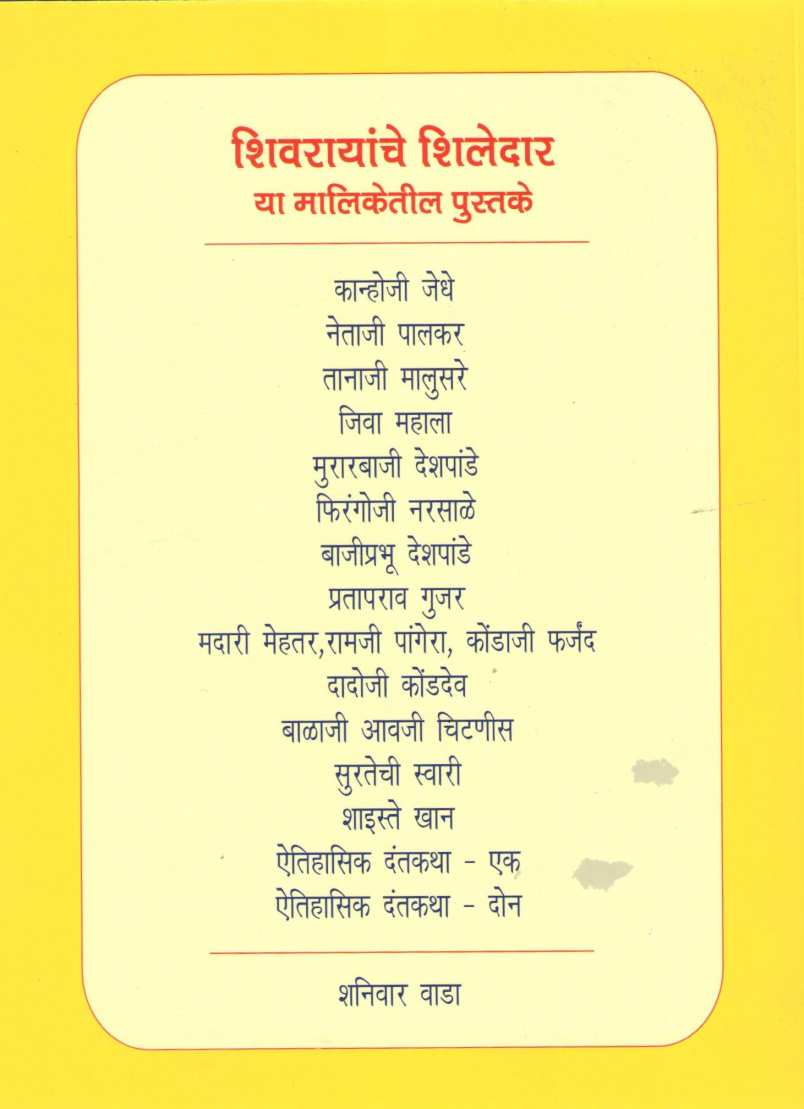 शिवरायांचे शिलेदार
या मालिकेतील पुस्तके
कान्होजी जेधे
नेताजी पालकर
तानाजी मालुसरे
जिवा महाला
मुरारबाजी देशपांडे
फिरंगोजी नरसाळे
बाजीप्रभू देशपांडे
प्रतापराव गुजर
मदारी मेहतर,रामजी पांगेरा, कोंडाजी फर्जंद
दादोजी कोंडदेव
बाळाजी आवजी चिटणीस
सुरतेची स्वारी
शाइस्ते खान
ऐतिहासिक दंतकथा - एक
ऐतिहासिक दंतकथा - दोन
शनिवार वाडा